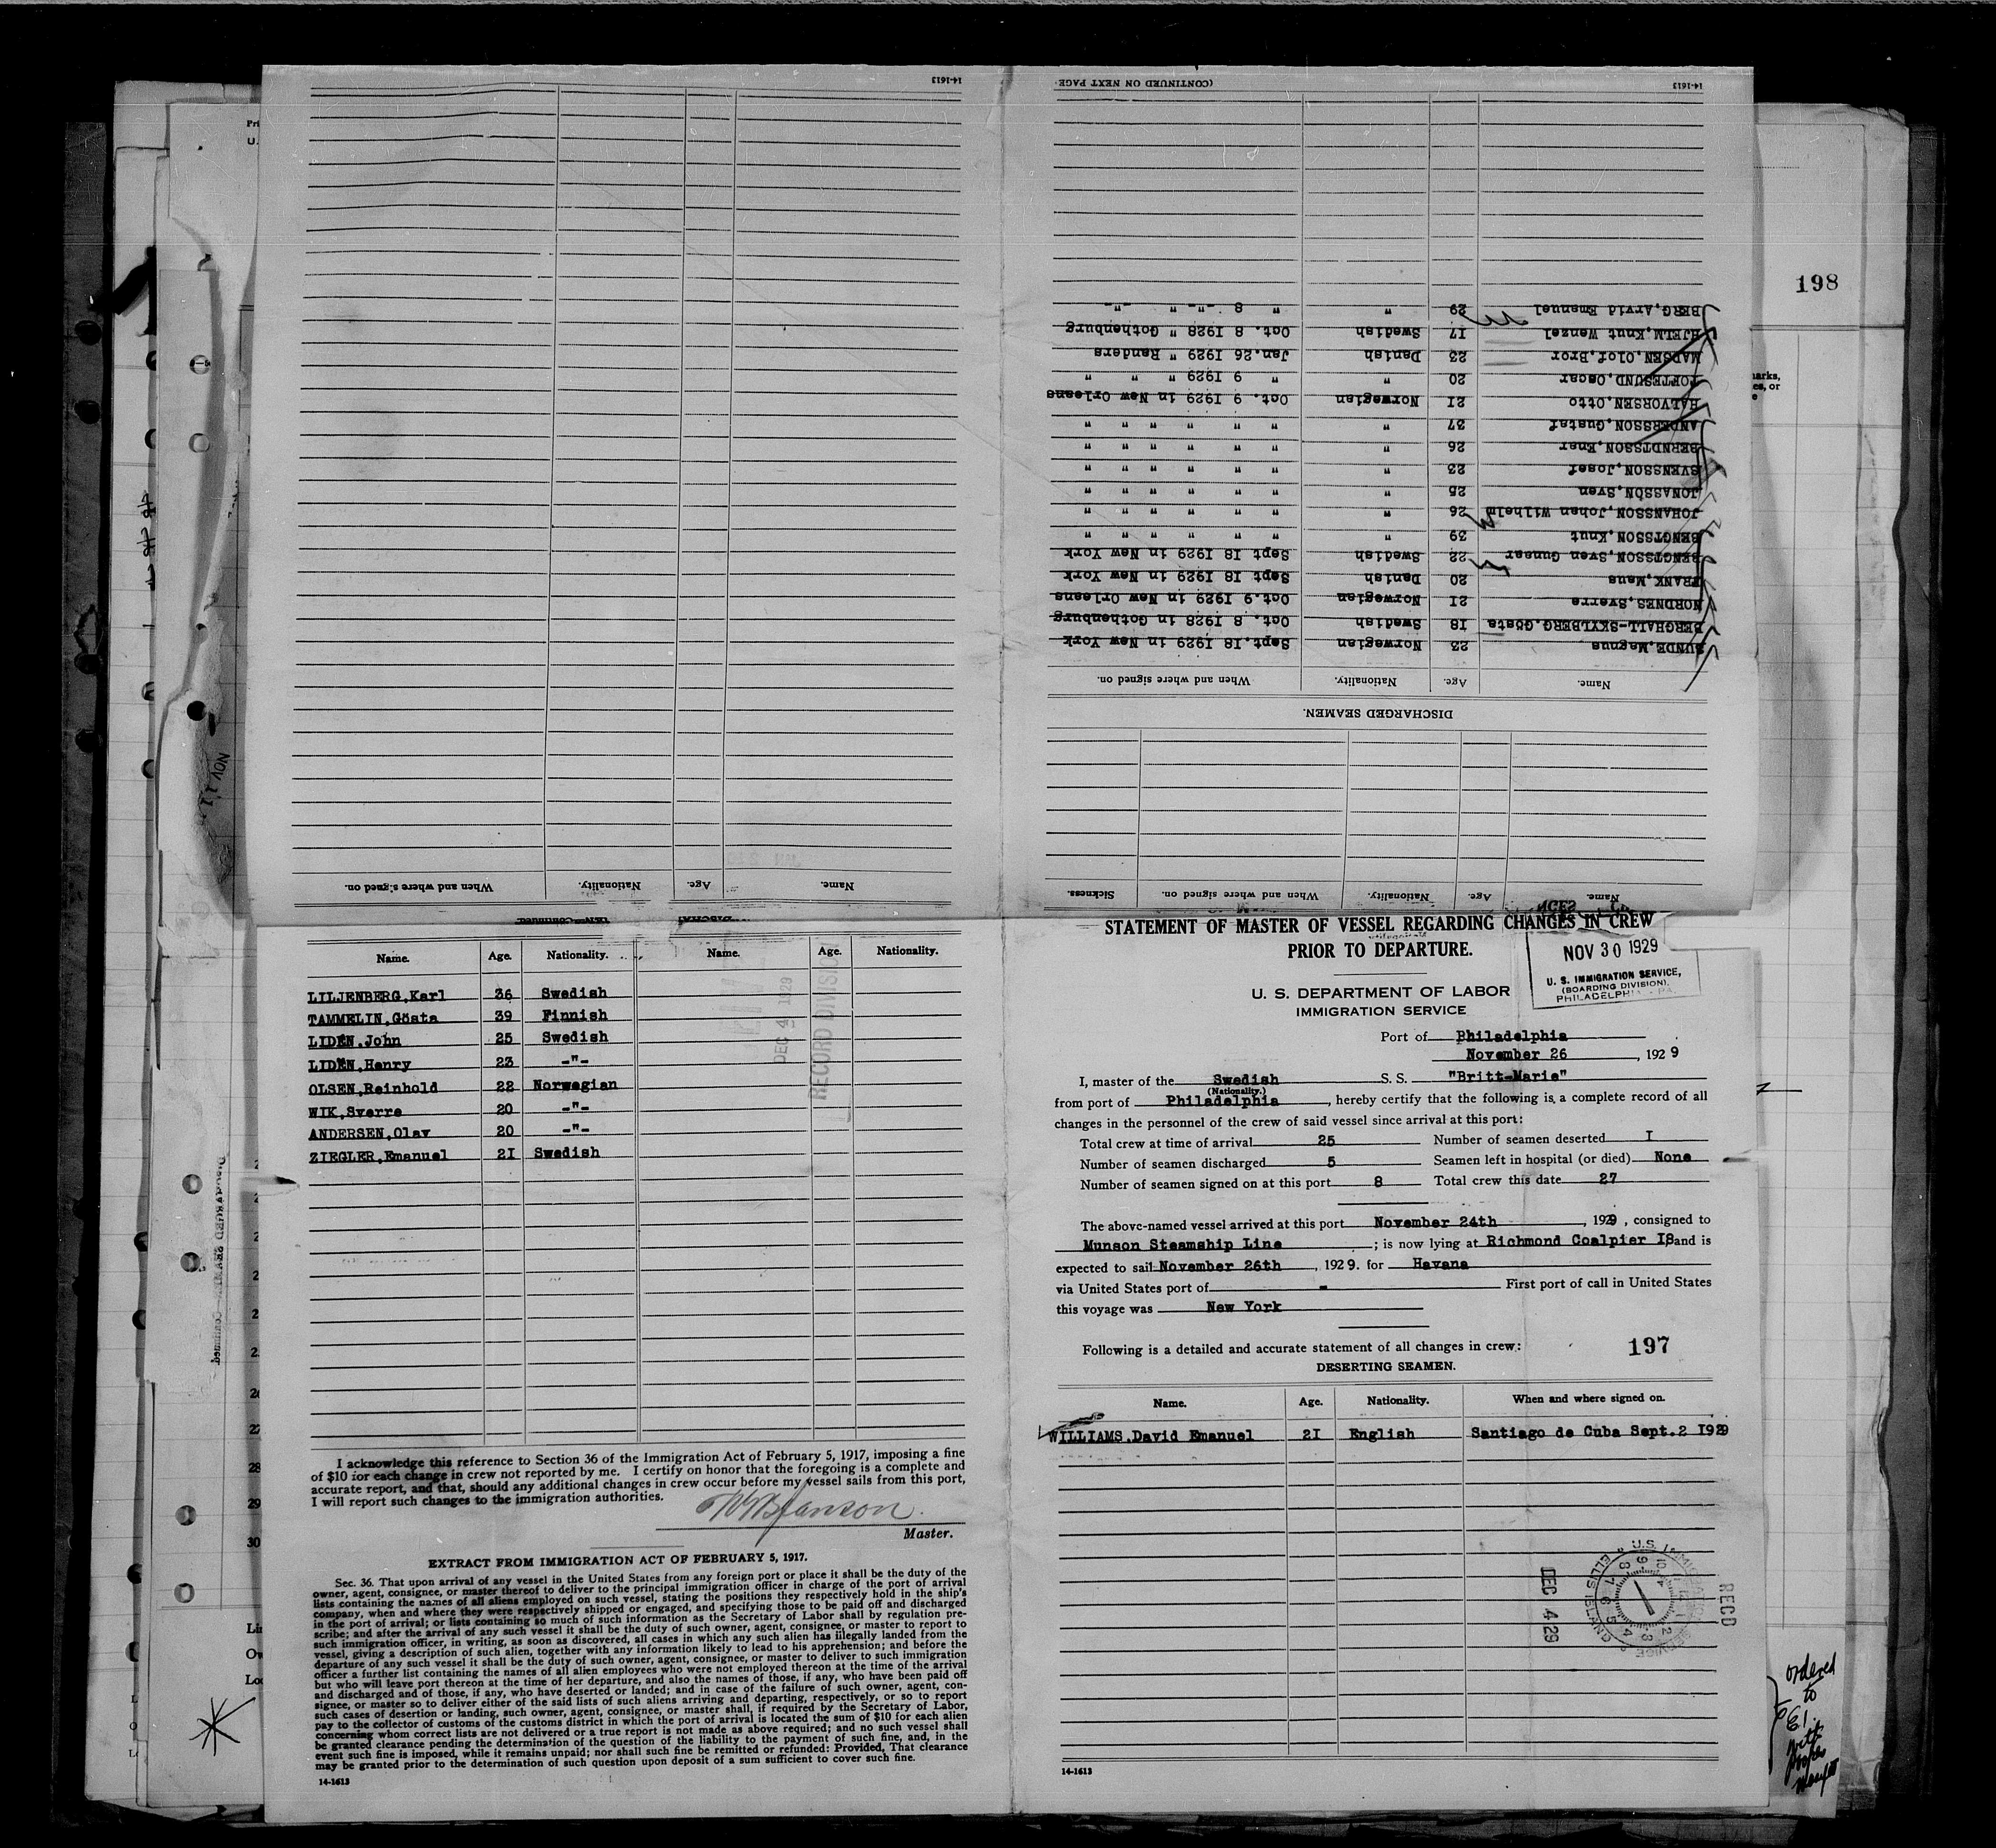 14-1613
(CONTINUED ON NEXT PAGE
14-1613
198
BERG,Arvid Emanuel 29 " " 8 -"- " -"-
HJELM,Knut Wenzel 17 Swedish Oct. 8 1928 " Gothenburg
MADSEN,Olof,Bror 23 Danish Jan.26 1929 " Randers
TOFTESUND,Oscar 20 " " 9 1929 " " "
HALVORSEN,Otto 21 Norwegian Oct. 9 1929 in New Orleans
ANDERSSON,Gustaf 37 " " " " " " "
BERNDTSSON,Enar 26 " " " " " " "
SVENSSON,Josef 23 " " " " " " "
JONASSON,Sven 25 " " " " " " "
JOHANSSON,Johan Wilhelm 26 " " " " " " "
BENGTSSON,Knut 39 " " " " " " "
BENGTSSON,Sven Gunnar 22 Swedish Sept 18 1929 in New York
FRANK,Mans 20 Danish Sept 18 1929 in New York
NORDNES,Sverre 21 Norwegian Oct.9 1929 in New Orleans
BERGHALL-SKYLBERG,Gösta 18 Swedish Oct. 8 1928 in Gothenburg
SUNDE,Magnus 23 Norwegian Sept.18 1929 in New York
Name. Age. Nationality. When and where signed on.
DISCHARGED SEAMEN.
Name. Age. Nationality. When and where signed on. Sickness.
Name. Age. Nationality. When and where signed on.
Name. Age. Nationality. Name. Age. Nationality.
LILJENBERG,Karl 36 Swedish
TAMMELIN,Gösta 39 Finnish
LIDEN,John 25 Swedish
LIDEN,Henry 23 -"-
OLSEN,Reinhold 22 Norwegian
WIK,Sverre 20 -"-
ANDERSEN,Olav 20 -"-
ZIEGLER,Emanuel 2I Swedish
DEC 4 1929
RECORD DIVISION
I acknowledge this reference to Section 36 of the Immigration Act of February 5, 1917, imposing a fine
of $10 for each change in crew not reported by me. I certify on honor that the foregoing is a complete and
accurate report, and that, should any additional changes in crew occur before my vessel sails from this port,
I will report such changes to the immigration authorities.
Master.
EXTRACT FROM IMMIGRATION ACT OF FEBRUARY 5, 1917.
Sec. 36. That upon arrival of any vessel in the United States from any foreign port or place it shall be the duty of the
owner, agent, consignee, or master thereof to deliver to the principal immigration officer in charge of the port of arrival
lists containing the names of all aliens employed on such vessel, stating the positions they respectively hold in the ship's
company, when and where they were respectively shipped or engaged, and specifying those to be paid off and discharged
in the port of arrival; or lists containing so much of such information as the Secretary of Labor shall by regulation pre-
scribe; and after the arrival of any such vessel it shall be the duty of such owner, agent, consignee, or master to report to
such immigration officer, in writing, as soon as discovered, all cases in which any such alien has illegally landed from the
vessel, giving a description of such alien, together with any information likely to lead to his apprehension; and before the
departure of any such vessel it shall be the duty of such owner, agent, consignee, or master to deliver to such immigration
officer a further list containing the names of all alien employees who were not employed thereon at the time of the arrival
but who will leave port thereon at the time of her departure, and also the names of those, if any, who have been paid off
and discharged and of those, if any, who have deserted or landed; and in case of the failure of such owner, agent, con-
signee, or master so to deliver either of the said lists of such aliens arriving and departing, respectively, or so to report
such cases of desertion or landing, such owner, agent, consignee, or master shall, if required by the Secretary of Labor,
pay to the collector of customs of the customs district in which the port of arrival is located the sum of $10 for each alien
concerning whom correct lists are not delivered or a true report is not made as above required; and no such vessel shall
be granted clearance pending the determination of the question of the liability to the payment of such fine, and, in the
event such fine is imposed, while it remains unpaid; nor shall such fine be remitted or refunded: Provided, That clearance
may be granted prior to the determination of such question upon deposit of a sum sufficient to cover such fine.
14-1613
STATEMENT OF MASTER OF VESSEL REGARDING CHANGES IN CREW
PRIOR TO DEPARTURE.
NOV 30 1929
U. S. IMMIGRATION SERVICE,
(BOARDING DIVISION).
PHILADELPHIA - PA.
U. S. DEPARTMENT OF LABOR
IMMIGRATION SERVICE
Port of Philadelphia
November 26, 1929
I, master of the Swedish S. S. "Britt-Marie"
(Nationality.)
from port of Philadelphia, hereby certify that the following is a complete record of all
changes in the personnel of the crew of said vessel since arrival at this port:
Total crew at time of arrival 25 Number of seamen deserted I
Number of seamen discharged 5 Seamen left in hospital (or died) None
Number of seamen signed on at this port 8 Total crew this date 27
The above-named vessel arrived at this port November 24th, 1929, consigned to
Munson Steamship Line; is now lying at Richmond Coalpier I8, and is
expected to sail November 26th, 1929. for Havana
via United States port of - First port of call in United States
this voyage was New York
Following is a detailed and accurate statement of all changes in crew: 197
DESERTING SEAMEN.
Name. Age. Nationality. When and where signed on.
WILLIAMS,David Emanuel 2I English Santiago de Cuba Sept.2 I929
RECD
DEC 4 29
14-1613
ordered
to
E I.
with